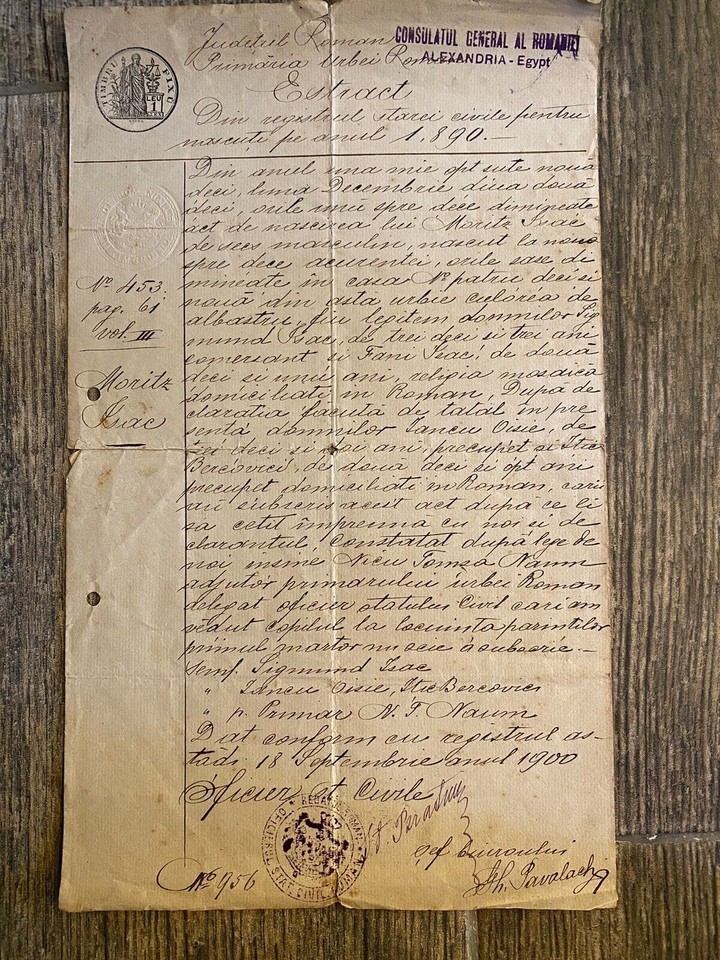 Județul Roman
CONSULATUL GENERAL AL ROMANIEI
Primăria Urbei Roman
ALEXANDRIA - Egypt
TIMBRU FIX
1 LEU
Estract
Din registrul starei civile pentru
născuți pe anul 1.890.—
Din anul una mie opt sute nouă
deci, luna Decembrie diua două
deci, orile unu spre dece dimineață
act de nascirea lui Moritz Isac
de secs masculin, născut la nouă
spre dece a curentei, orile șase di
mineață în casa No patru deci și
nouă din astă urbie culórea de
albastru, fiu legitim domnilor Sig
mund Isac, de trei deci și trei ani
comersant și Fani Isac, de două
deci și unu ani, religia mosaică
domiciliați în Roman, După de
clarația făcută de tatăl în pre
sența domnilor Iancu Oisie, de
trei deci și doi ani, precupeț și Itic
Bercovici, de două deci și opt ani
precupeț domiciliați în Roman, cari
au subscris acest act după ce li
sa cetit împreună cu noi și de
clarantul, Constatat după lege de
noi insine Nicu Tomsa Naum
adjutor primarului urbei Roman
delegat oficier statului Civil cari am
vĕdut copilul la locuința părinților
primul martor nu scie a subscrie.—
Semf. Sigmund Isac
" Iancu Oisie, Itic Bercovici
" p. Primar N. T. Naum
Dat conform cu registrul as-
tădi 18 Septembrie anul 1900
Oficier st Civile
șef biuroului
No 956
No 453.
pag. 61
vol. III
Moritz
Isac